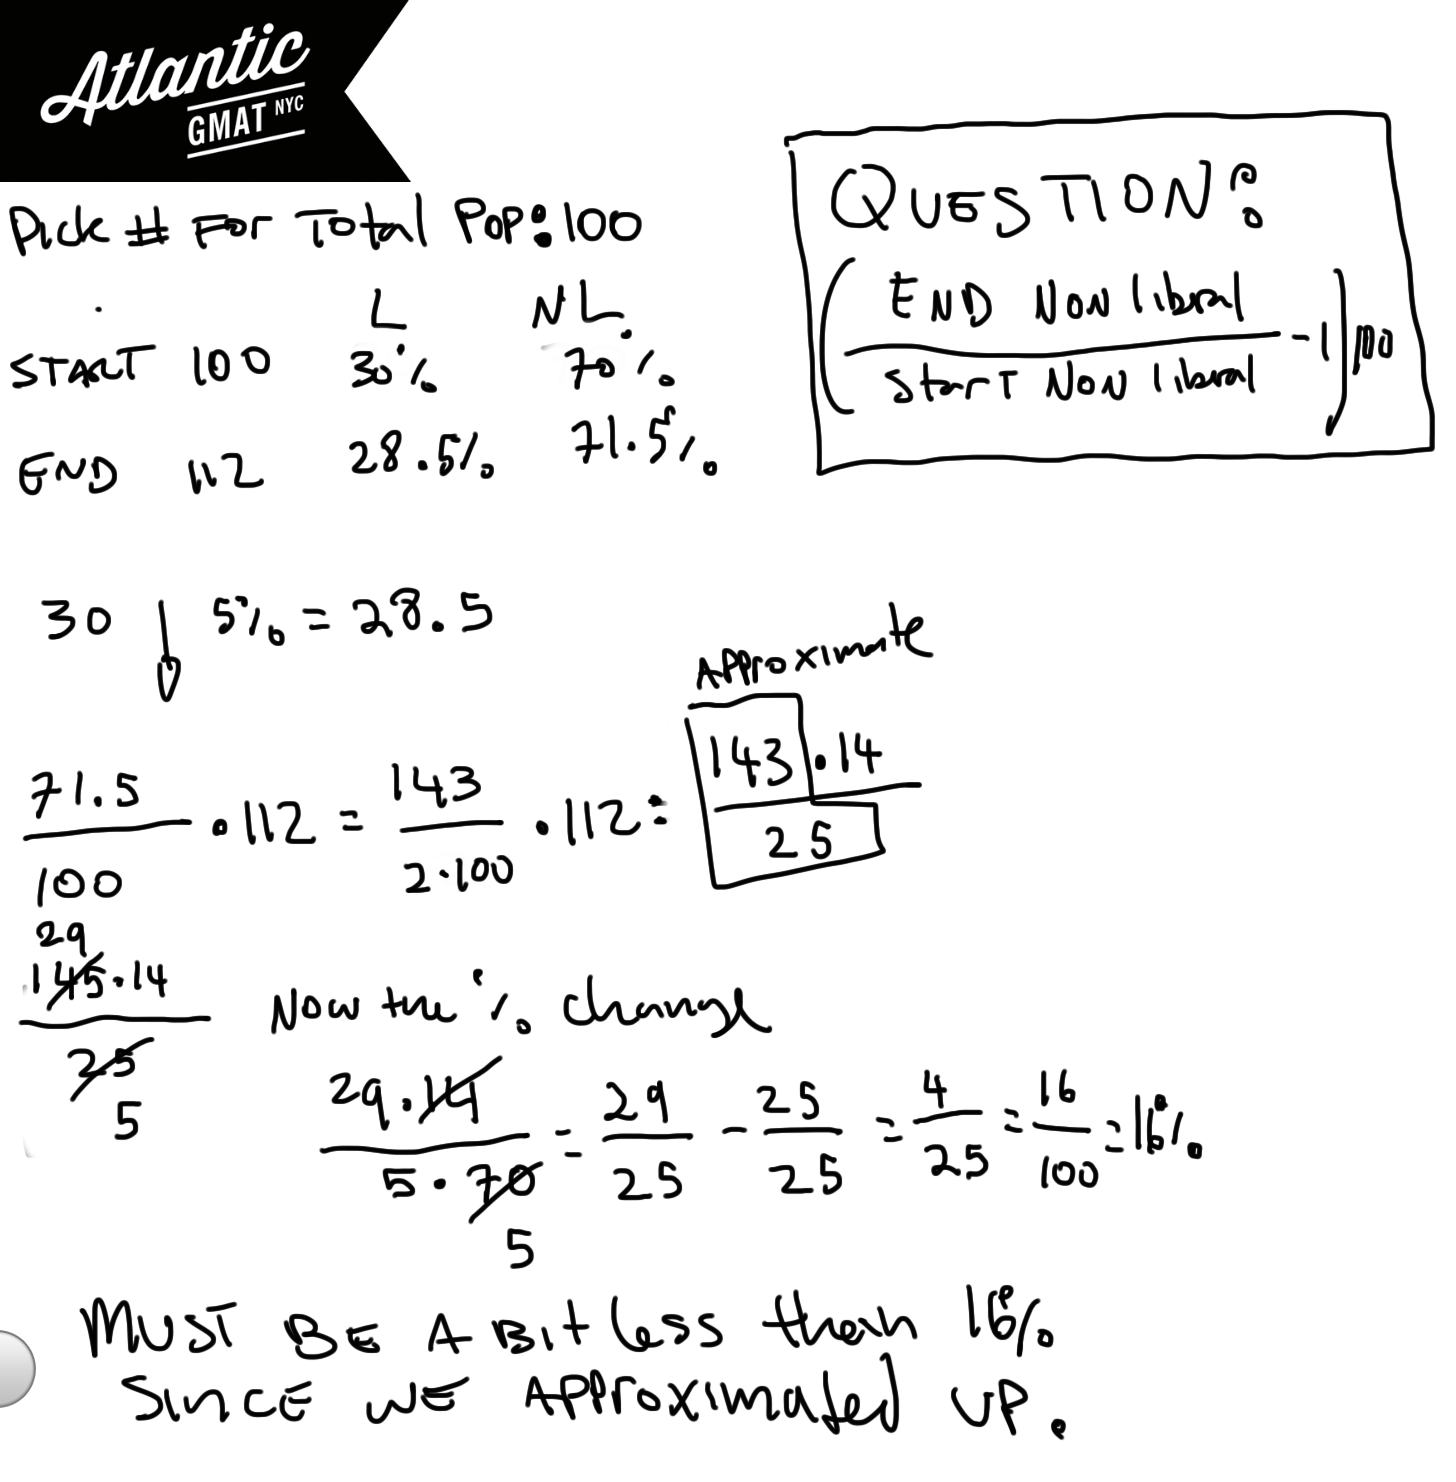 Atlantic
GMAT NYC
Pick # For Total Pop: 100
L NL
START 100 30% 70%
END 112 28.5% 71.5%
QUESTION:
(END NON libral / Start NON libral - 1) 100
30 ↓ 5% = 28.5
APProximate
71.5/100 · 112 = 143/2·100 · 112 = 143 · 14/25
29
145 · 14/25
5
Now the % change
29 · 14/5 · 70 = 29/25 - 25/25 = 4/25 = 16/100 = 16%
5
MUST BE A BIT less than 16%
SINCE WE APProximated UP.